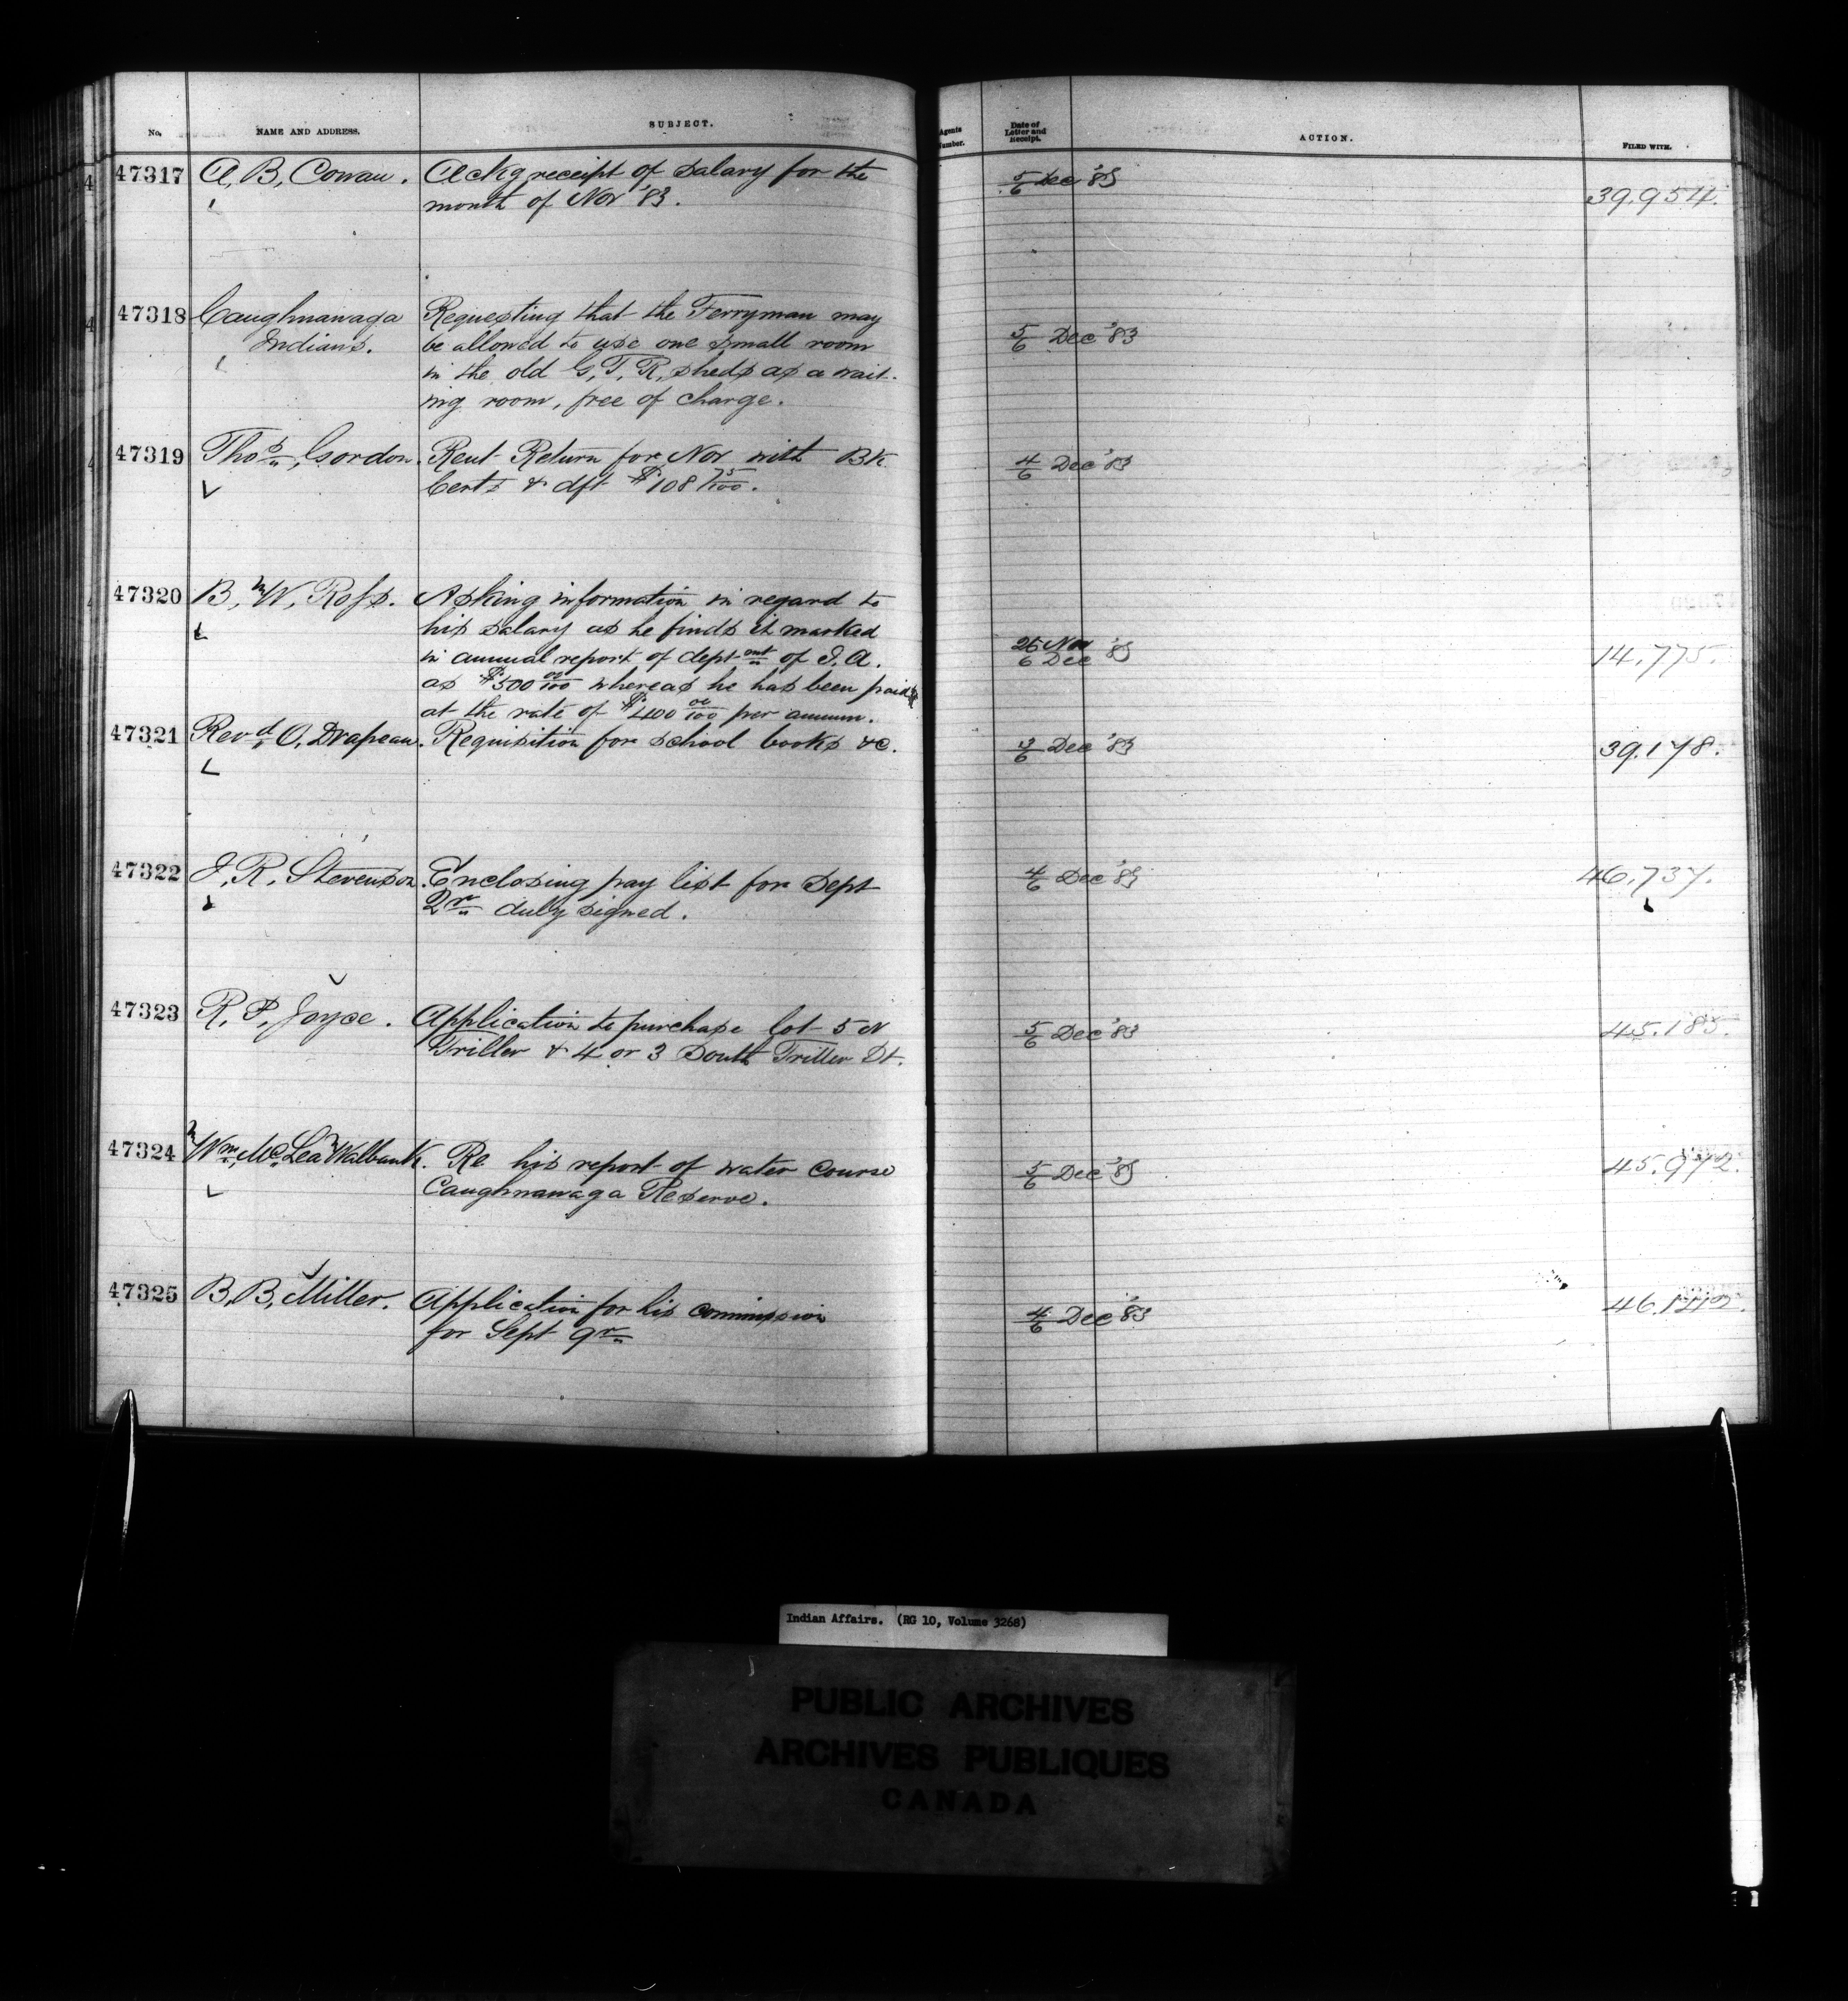 No. NAME AND ADDRESS. SUBJECT. Agents Number. Date of Letter and Receipt. ACTION. FILED WITH.
47317 A, B, Cowan. Ackg receipt of salary for the 5/6 Dec '83 39.954.
month of Nov '83.
47318 Caughnawaga Requesting that the Ferryman may 5/6 Dec '83
Indians. be allowed to use one small room
in the old G, T, R, sheds as a wait-
ing room, free of charge.
47319 Thos, Gordon. Rent Return for Nov with Bk 4/6 Dec '83
Certs & dft $108 75/100.
47320 B, W, Ross. Asking information in regard to
his salary as he finds it marked 26 Nov
in annual report of deptmnt of I. A. 6 Dec '83 14,775.
as $500 00/100 whereas he has been paid
at the rate of $400 00/100 per annum.
47321 Revd O, Drapeau. Requisition for school books &c. 3/6 Dec '83 39.178.
47322 J, R, Stevenson. Enclosing pay list for Sept 4/6 Dec '83 46,737.
Qr duly signed.
47323 R, P, Joyce. Application to purchase lot 5 N 5/6 Dec '83 45.185.
Triller & 4 or 3 South Triller St.
47324 Wm, Mc Lea Walbank. Re his report of water course 5/6 Dec '83 45.972.
Caughnawaga Reserve.
47325 B, B, Miller. Application for his commission 4/6 Dec '83
for Sept qr
Indian Affairs. (RG 10, Volume 3268)
PUBLIC ARCHIVES
ARCHIVES PUBLIQUES
CANADA